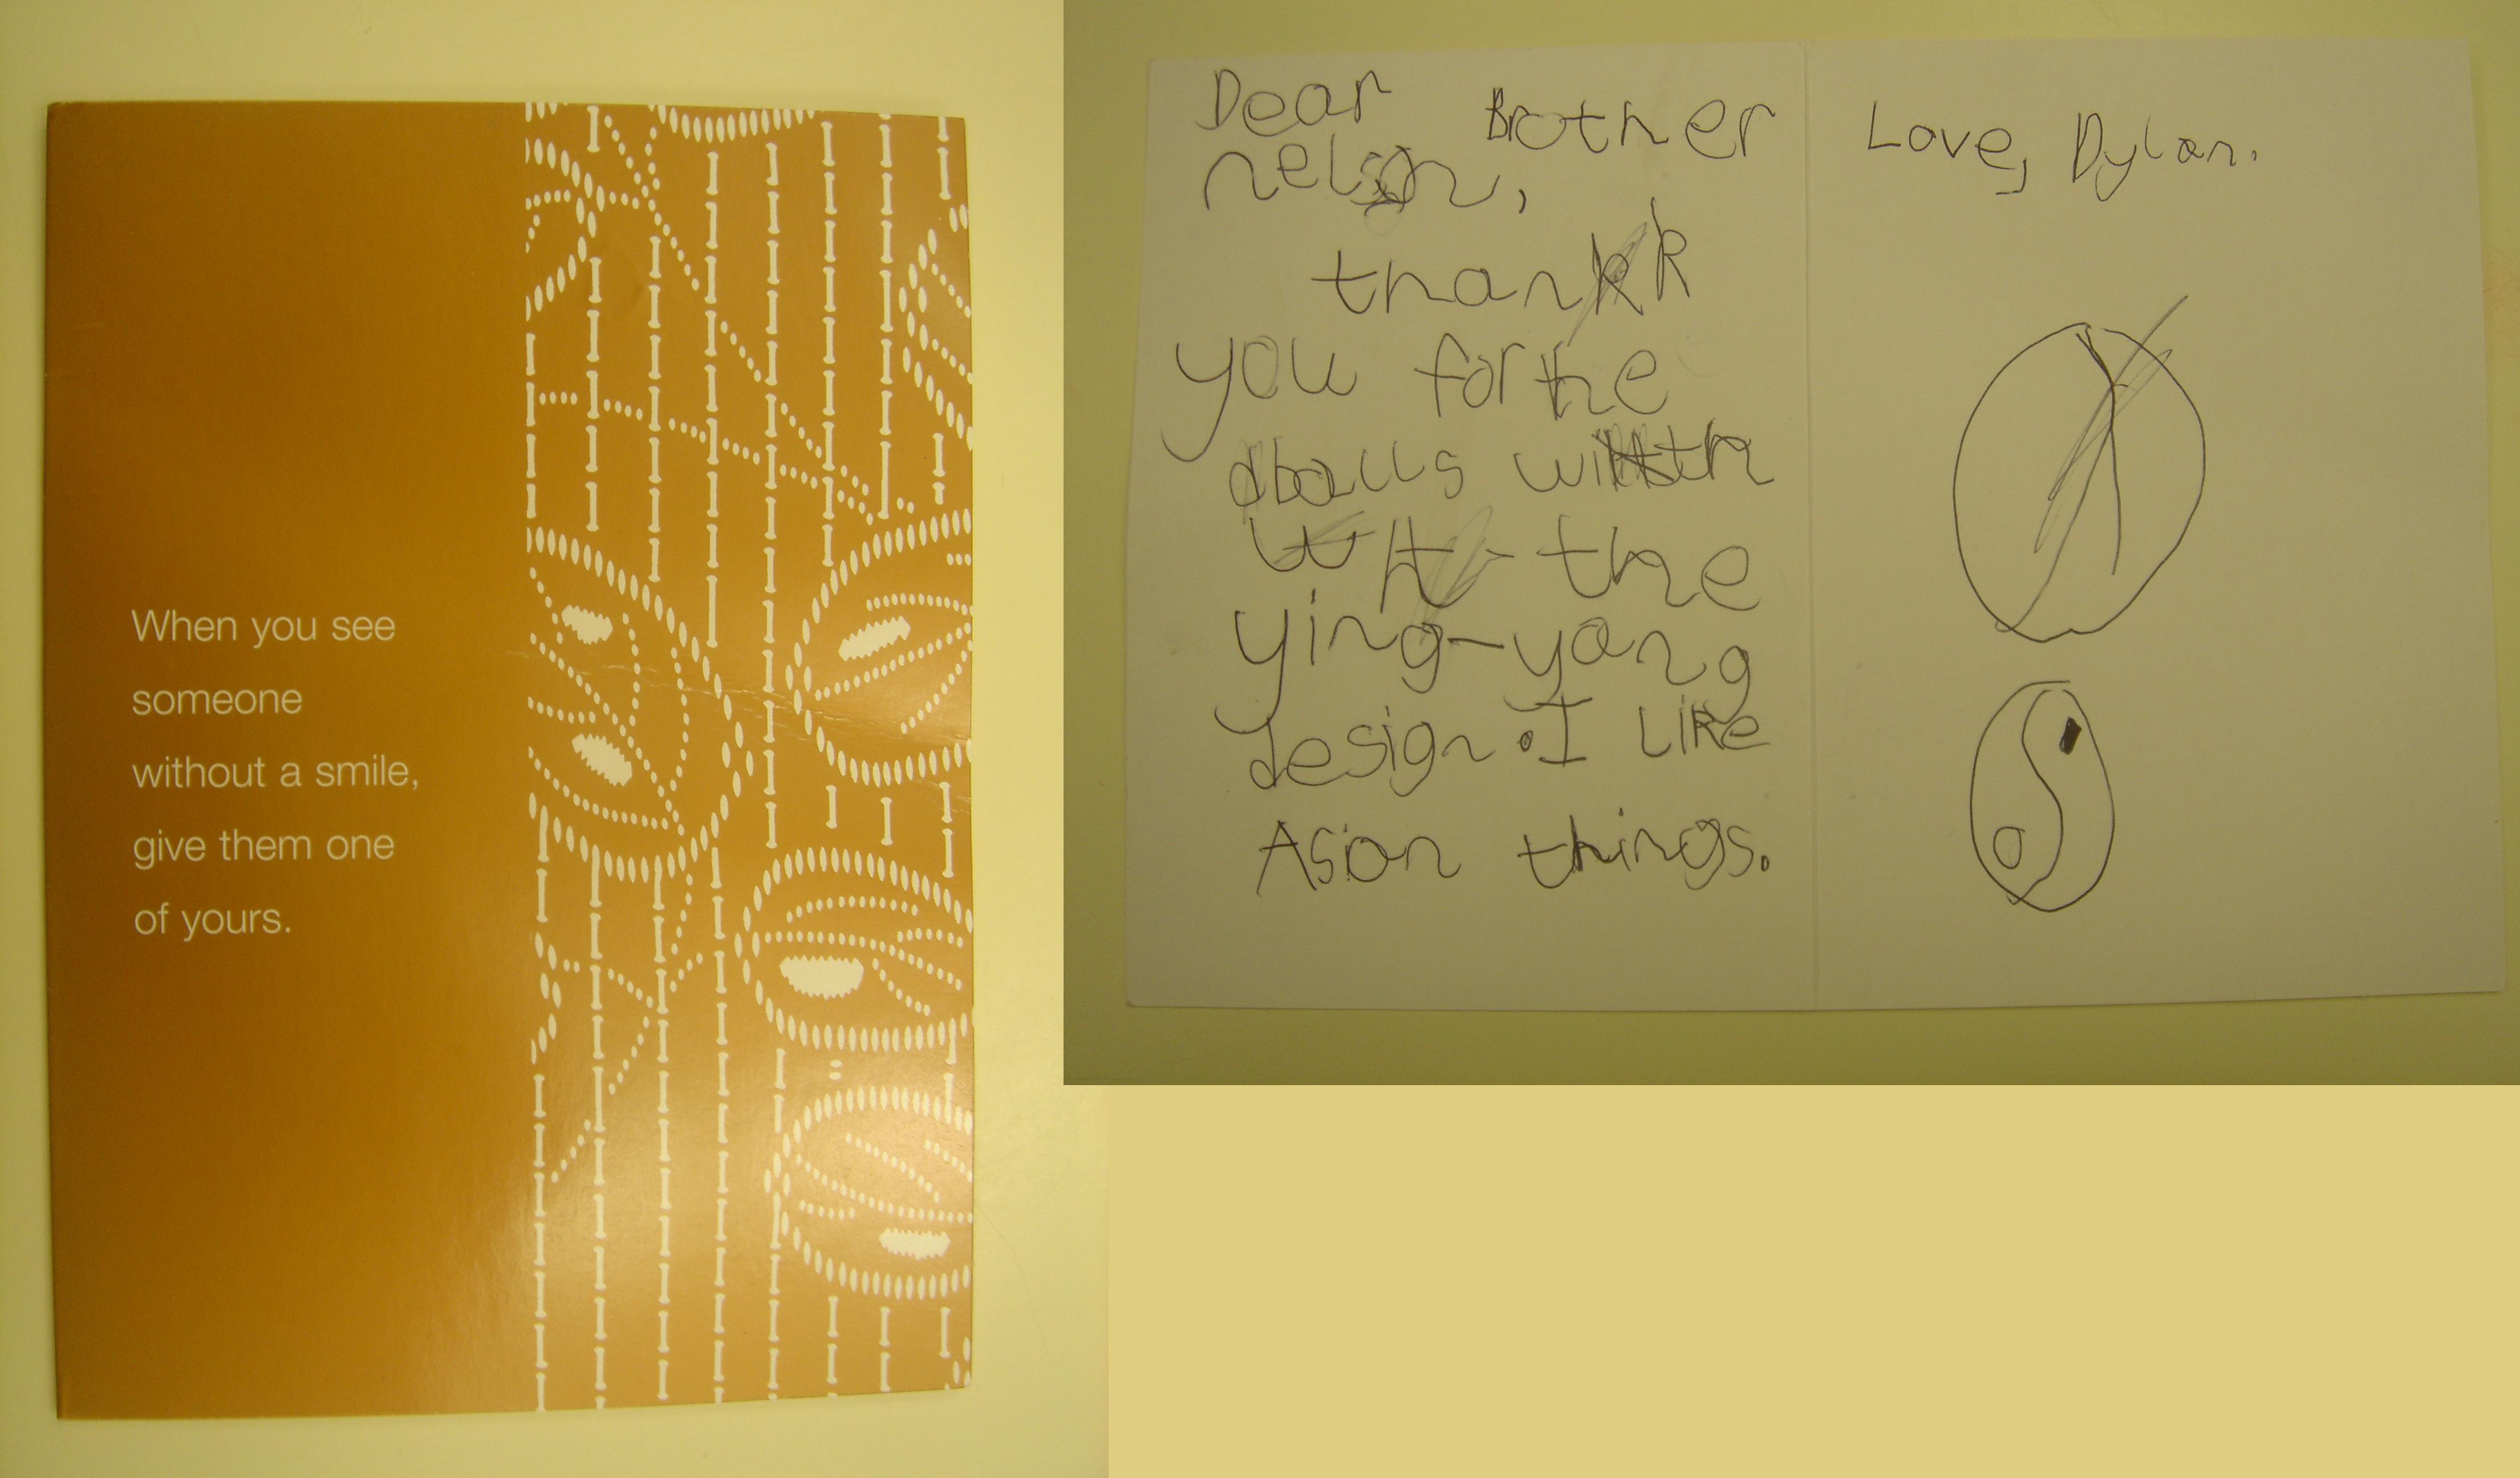 When you see
someone
without a smile,
give them one
of yours.
Dear Brother
nelson,
thank
you for the
balls with
the
ying-yang
design. I like
Asian things.
Love, Dylan.